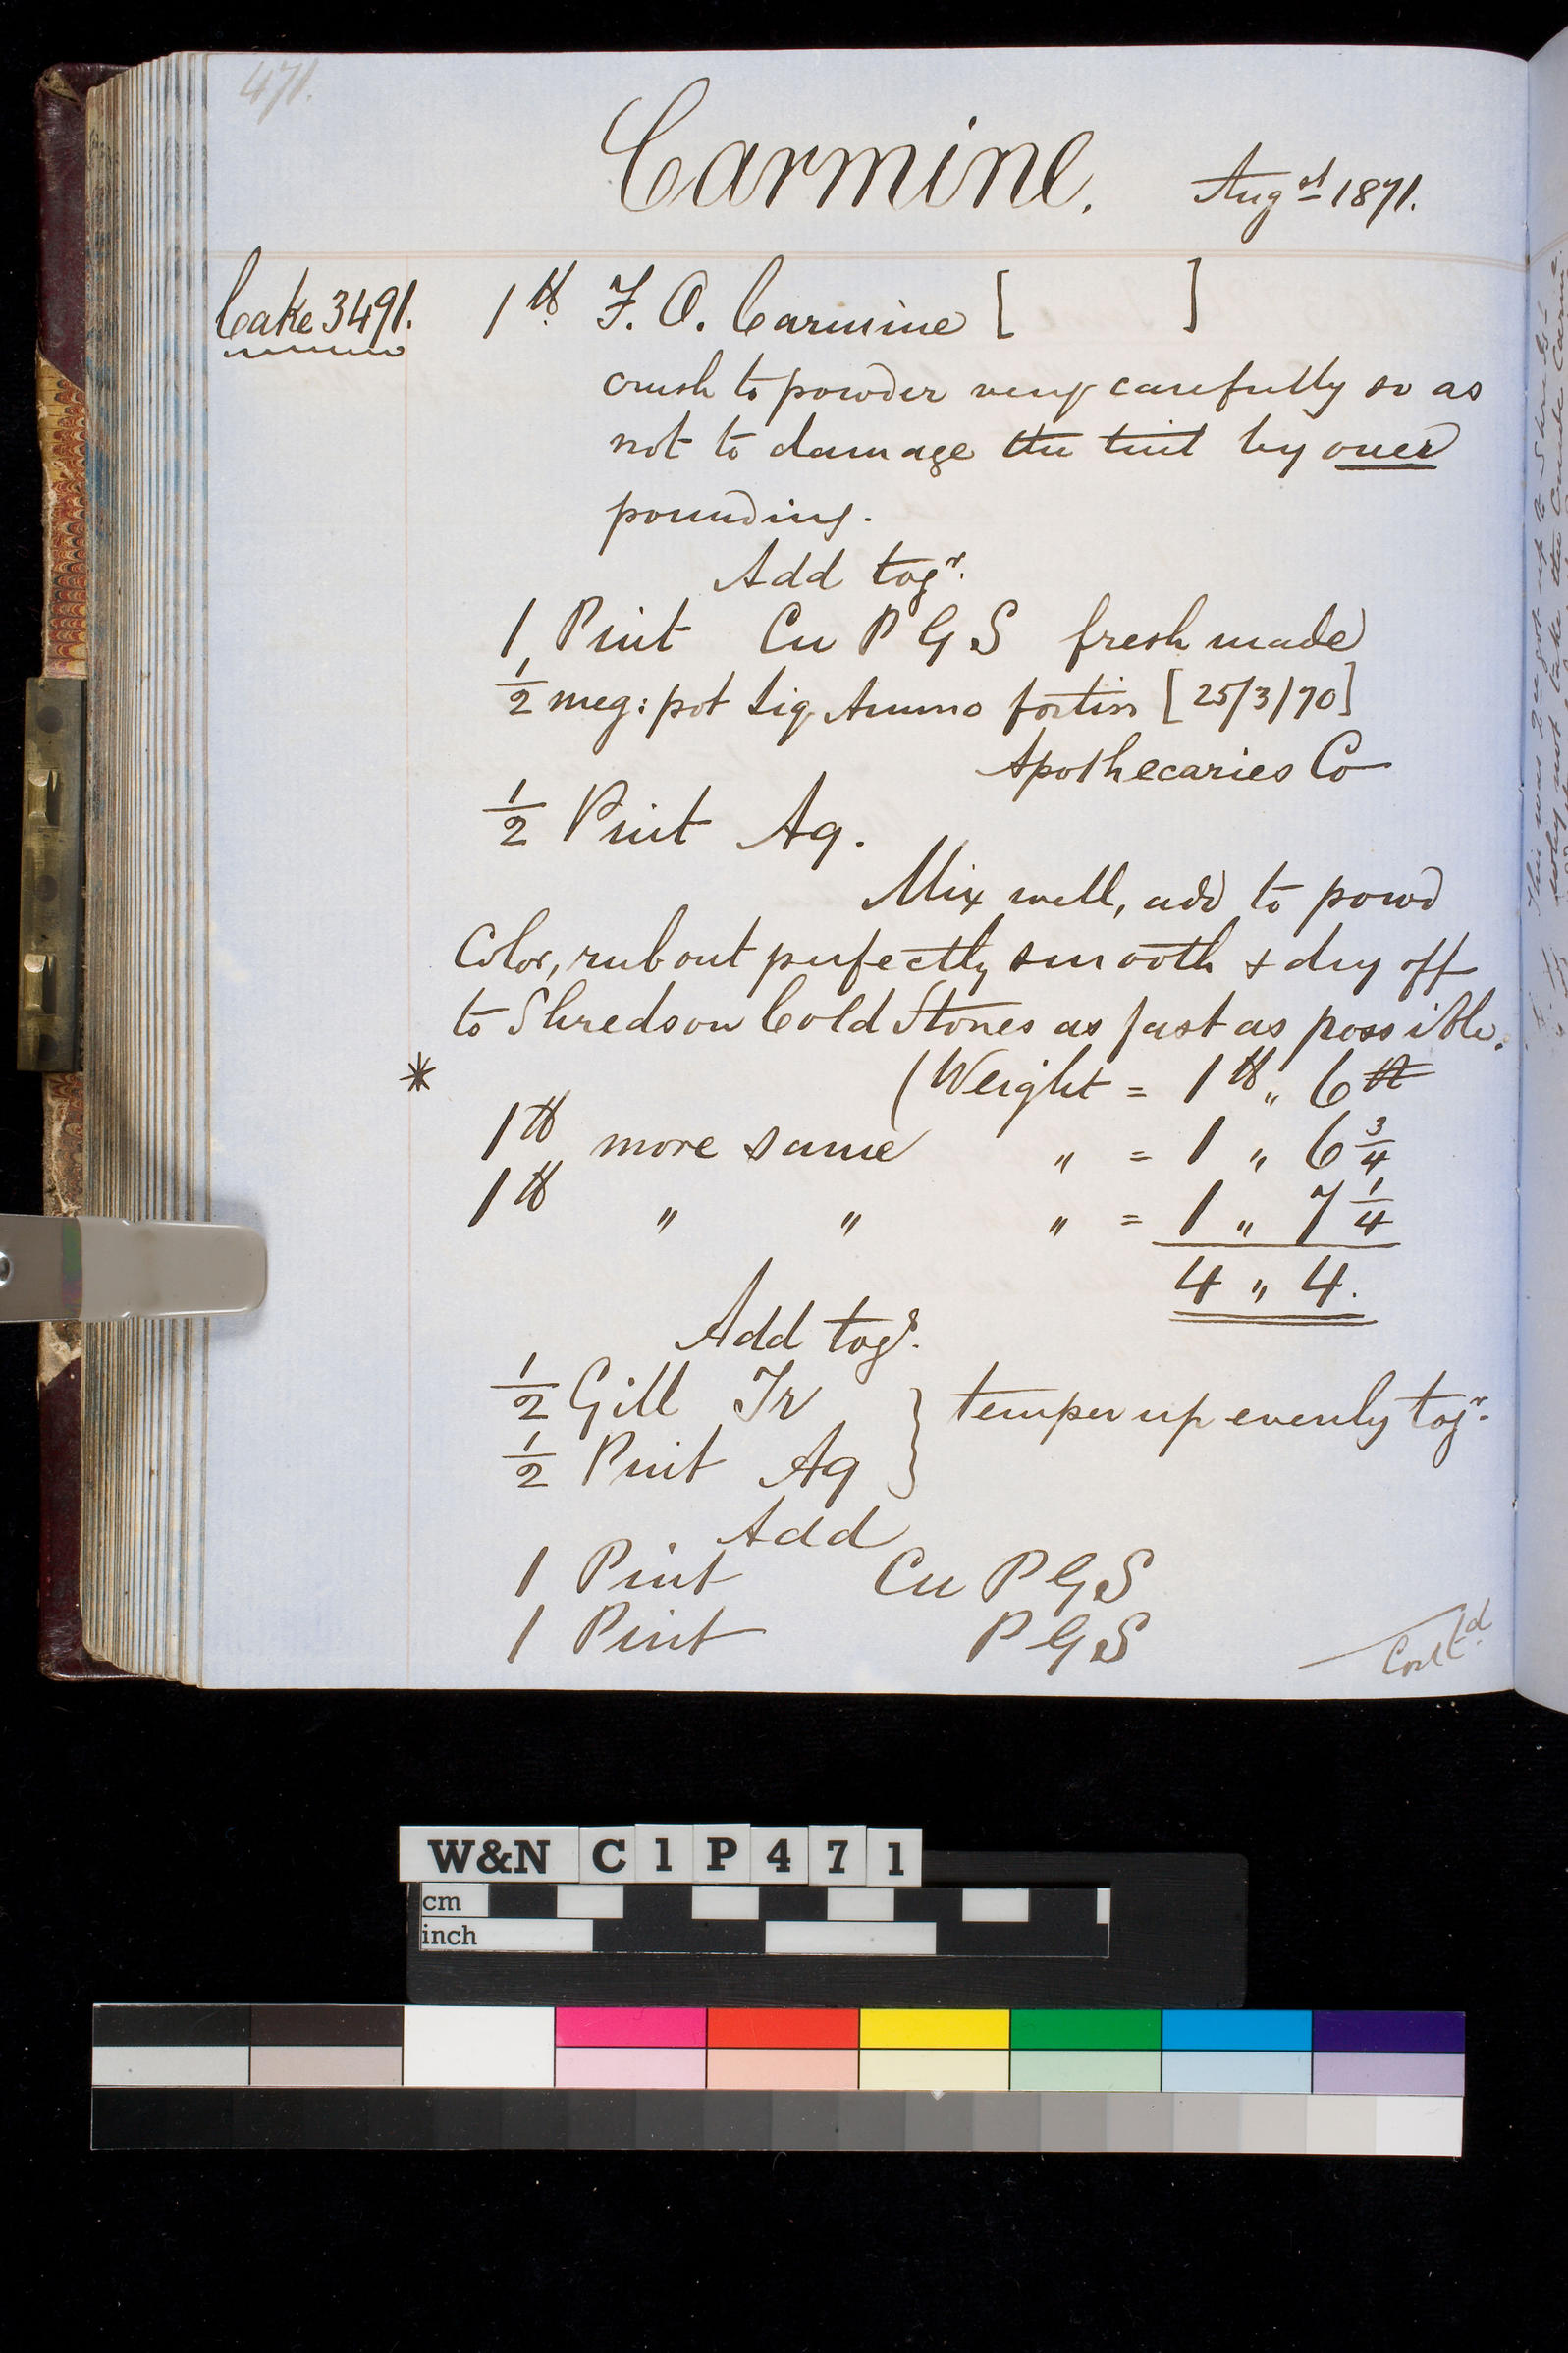 471.
Carmine. Augst 1871.
Cake 3491. 1 lb F. O. Carmine [ ]
crush to powder very carefully so as
not to damage the tint by over
pounding.
Add togr.
1 Pint Cu P G S fresh made
1/2 meg: pot Liq Ammo fortiss [25/3/70]
Apothecaries Co
1/2 Pint Aq.
Mix well, add to powd
Color, rub out perfectly smooth & dry off
to Shreds on Cold Stones as fast as possible.
* (Weight = 1 lb „ 6
1 lb more same „ = 1 „ 6 3/4
1 lb „ „ „ = 1 „ 7 1/4
4 „ 4.
Add togr.
1/2 Gill Tr } temper up evenly togr.
1/2 Pint Aq
Add
1 Pint Cu P G S
1 Pint P G S
Contd.
W&N C 1 P 4 7 1
cm
inch